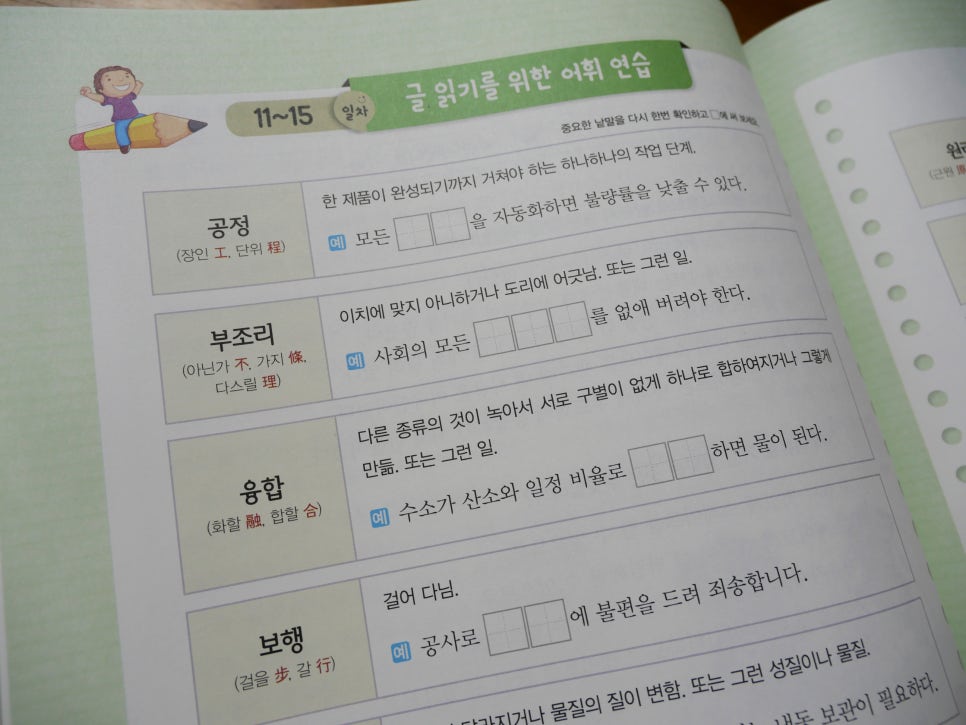 11~15 일차
글 읽기를 위한 어휘 연습
중요한 낱말을 다시 한번 확인하고 □에 써 보세요.
공정
(장인 工, 단위 程)
한 제품이 완성되기까지 거쳐야 하는 하나하나의 작업 단계.
예 모든 □□을 자동화하면 불량률을 낮출 수 있다.
부조리
(아닌가 不, 가지 條,
다스릴 理)
이치에 맞지 아니하거나 도리에 어긋남. 또는 그런 일.
예 사회의 모든 □□□를 없애 버려야 한다.
융합
(화할 融, 합할 合)
다른 종류의 것이 녹아서 서로 구별이 없게 하나로 합하여지거나 그렇게
만듦. 또는 그런 일.
예 수소가 산소와 일정 비율로 □□하면 물이 된다.
보행
(걸을 步, 갈 行)
걸어 다님.
예 공사로 □□에 불편을 드려 죄송합니다.
달라지거나 물질의 질이 변함. 또는 그런 성질이나 물질.
냉동 보관이 필요하다.
(근원